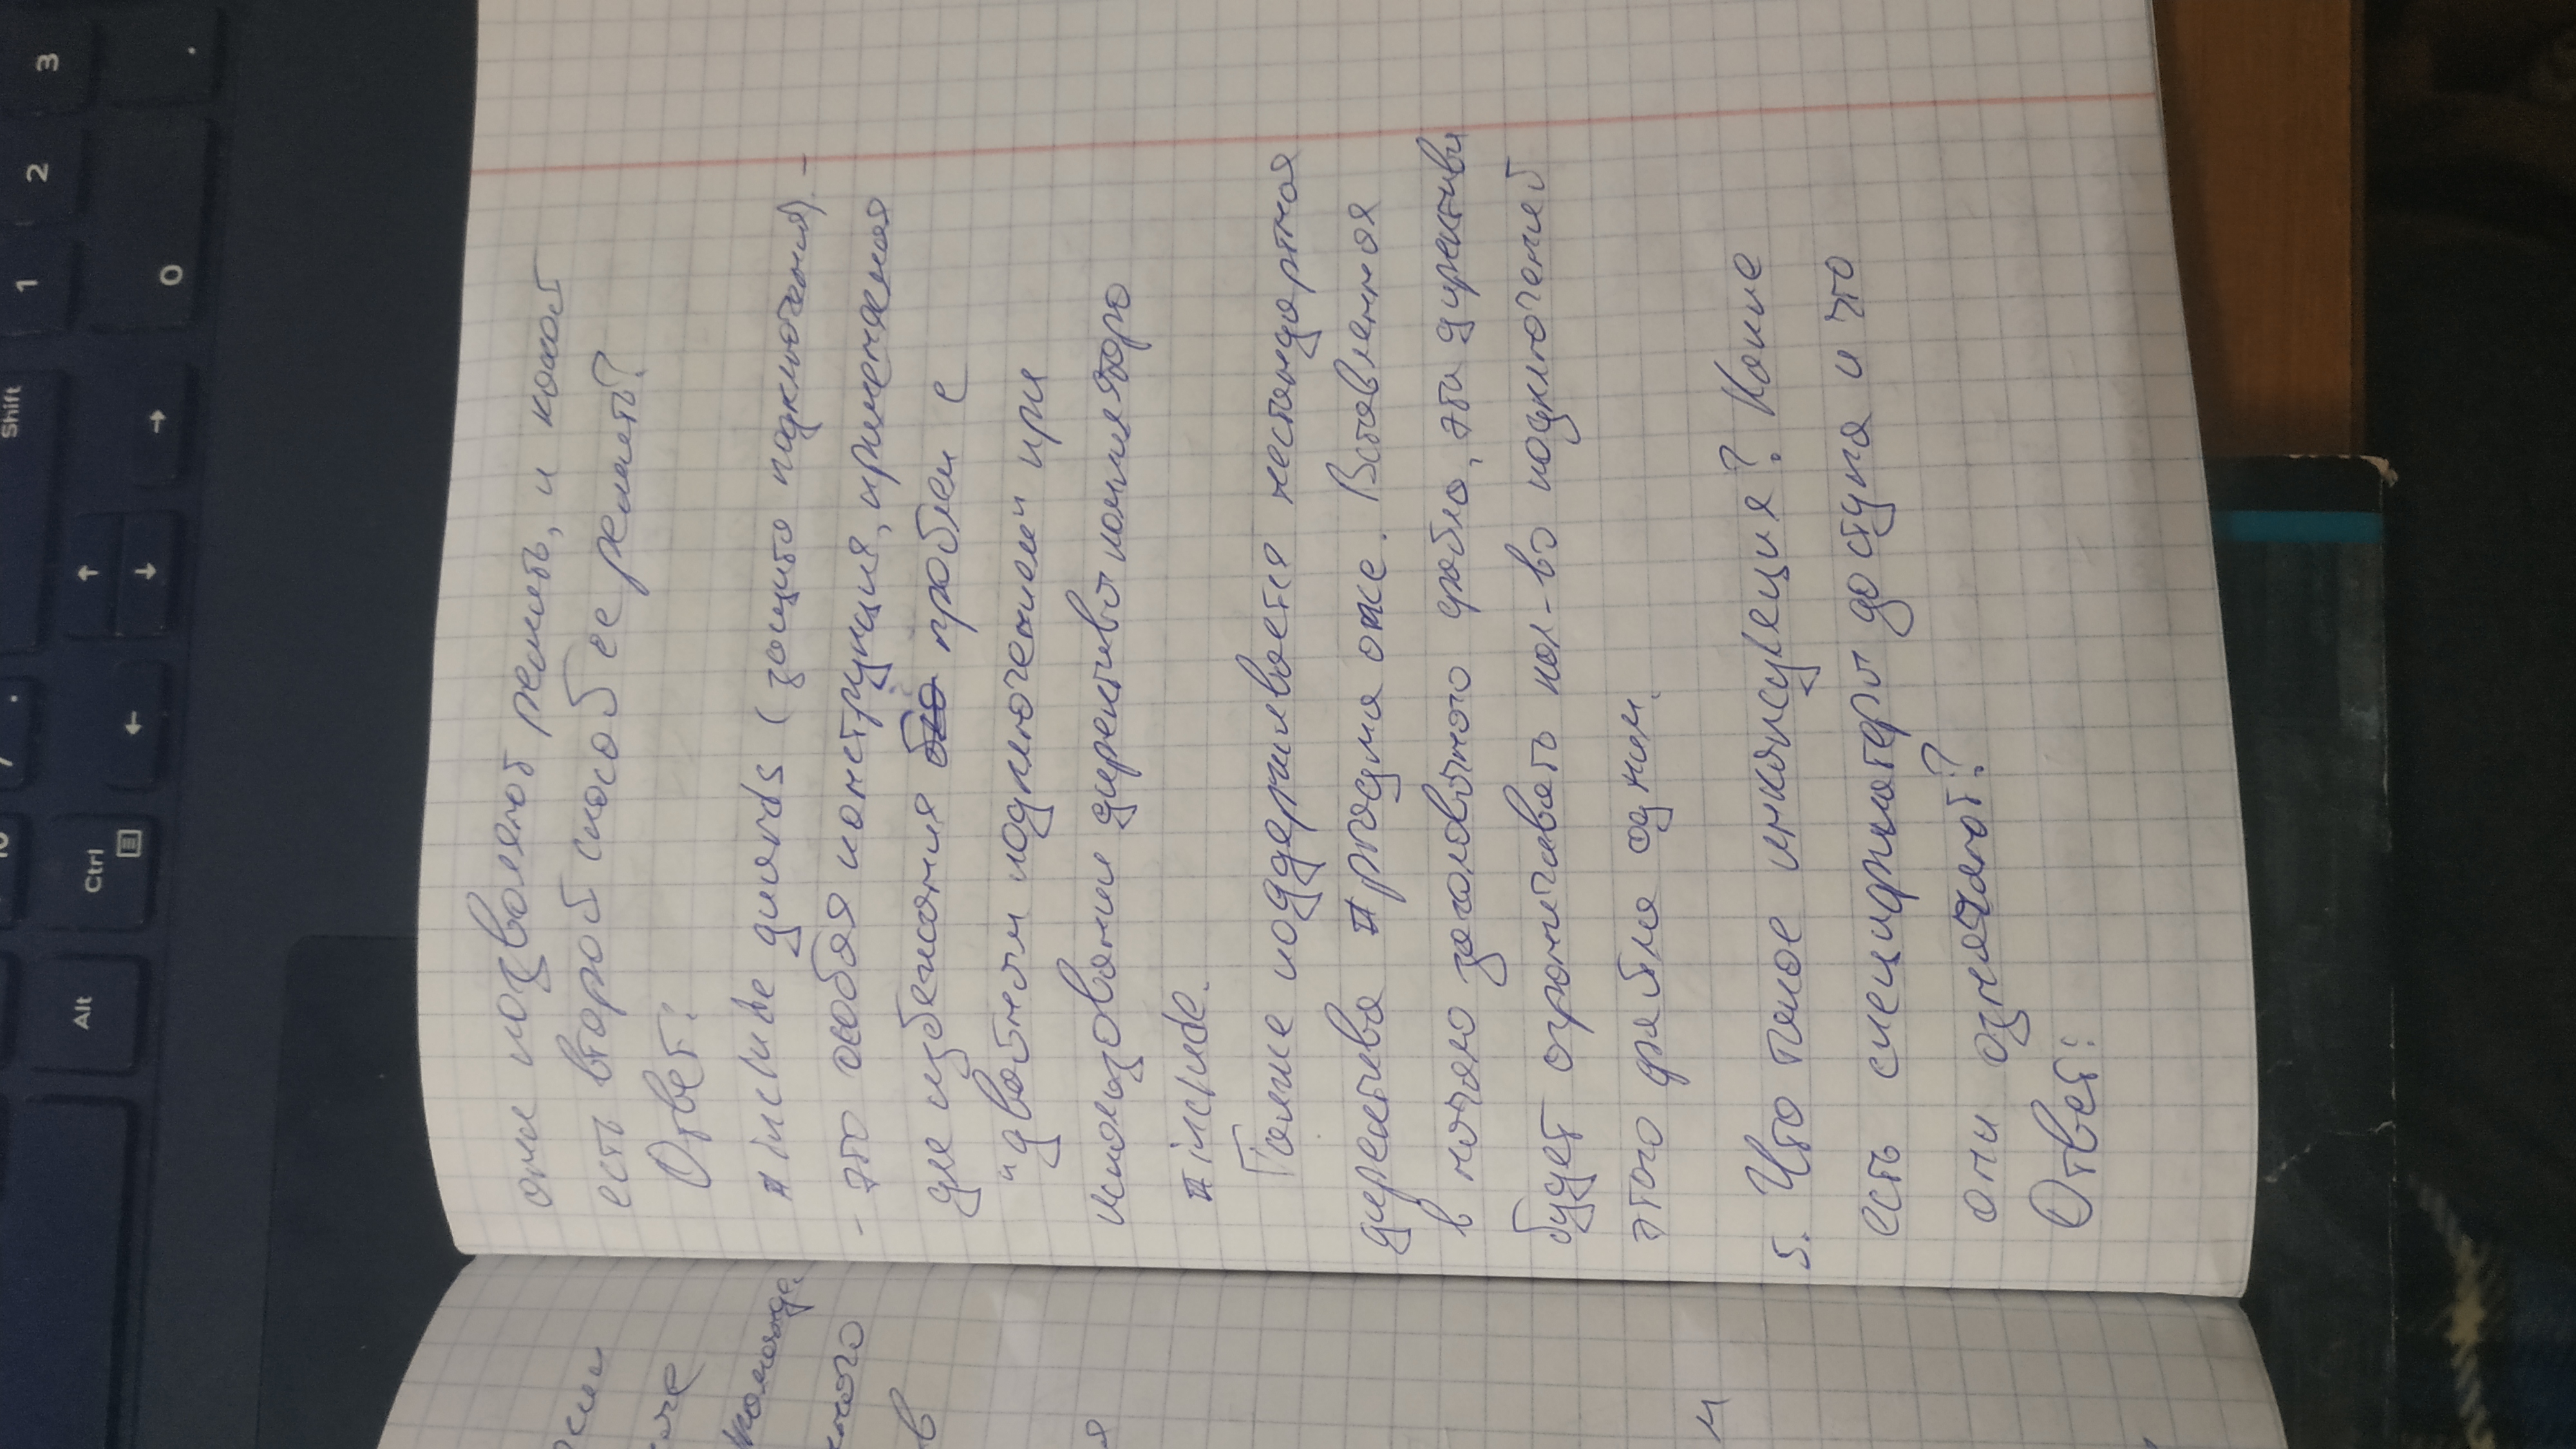 Shift
1
2
3
Alt
Ctrl
↑
←
↓
→
0
.
они позволяют решить, и какой
есть второй способ ее решить?
Ответ:
#include guards (защита подключения) -
- это особая конструкция, применяемая
для избежания проблем с
"двойным подключением" при
использовании директивы компилятора
#include.
Также поддерживается нестандартная
директива #pragma once. Вставленная
в начало заголовочного файла, эта директива
будет ограничивать кол-во подключений
этого файла одним.
5. Что такое инкапсуляция? Какие
есть спецификаторы доступа и что
они означают?
Ответ:
в
я